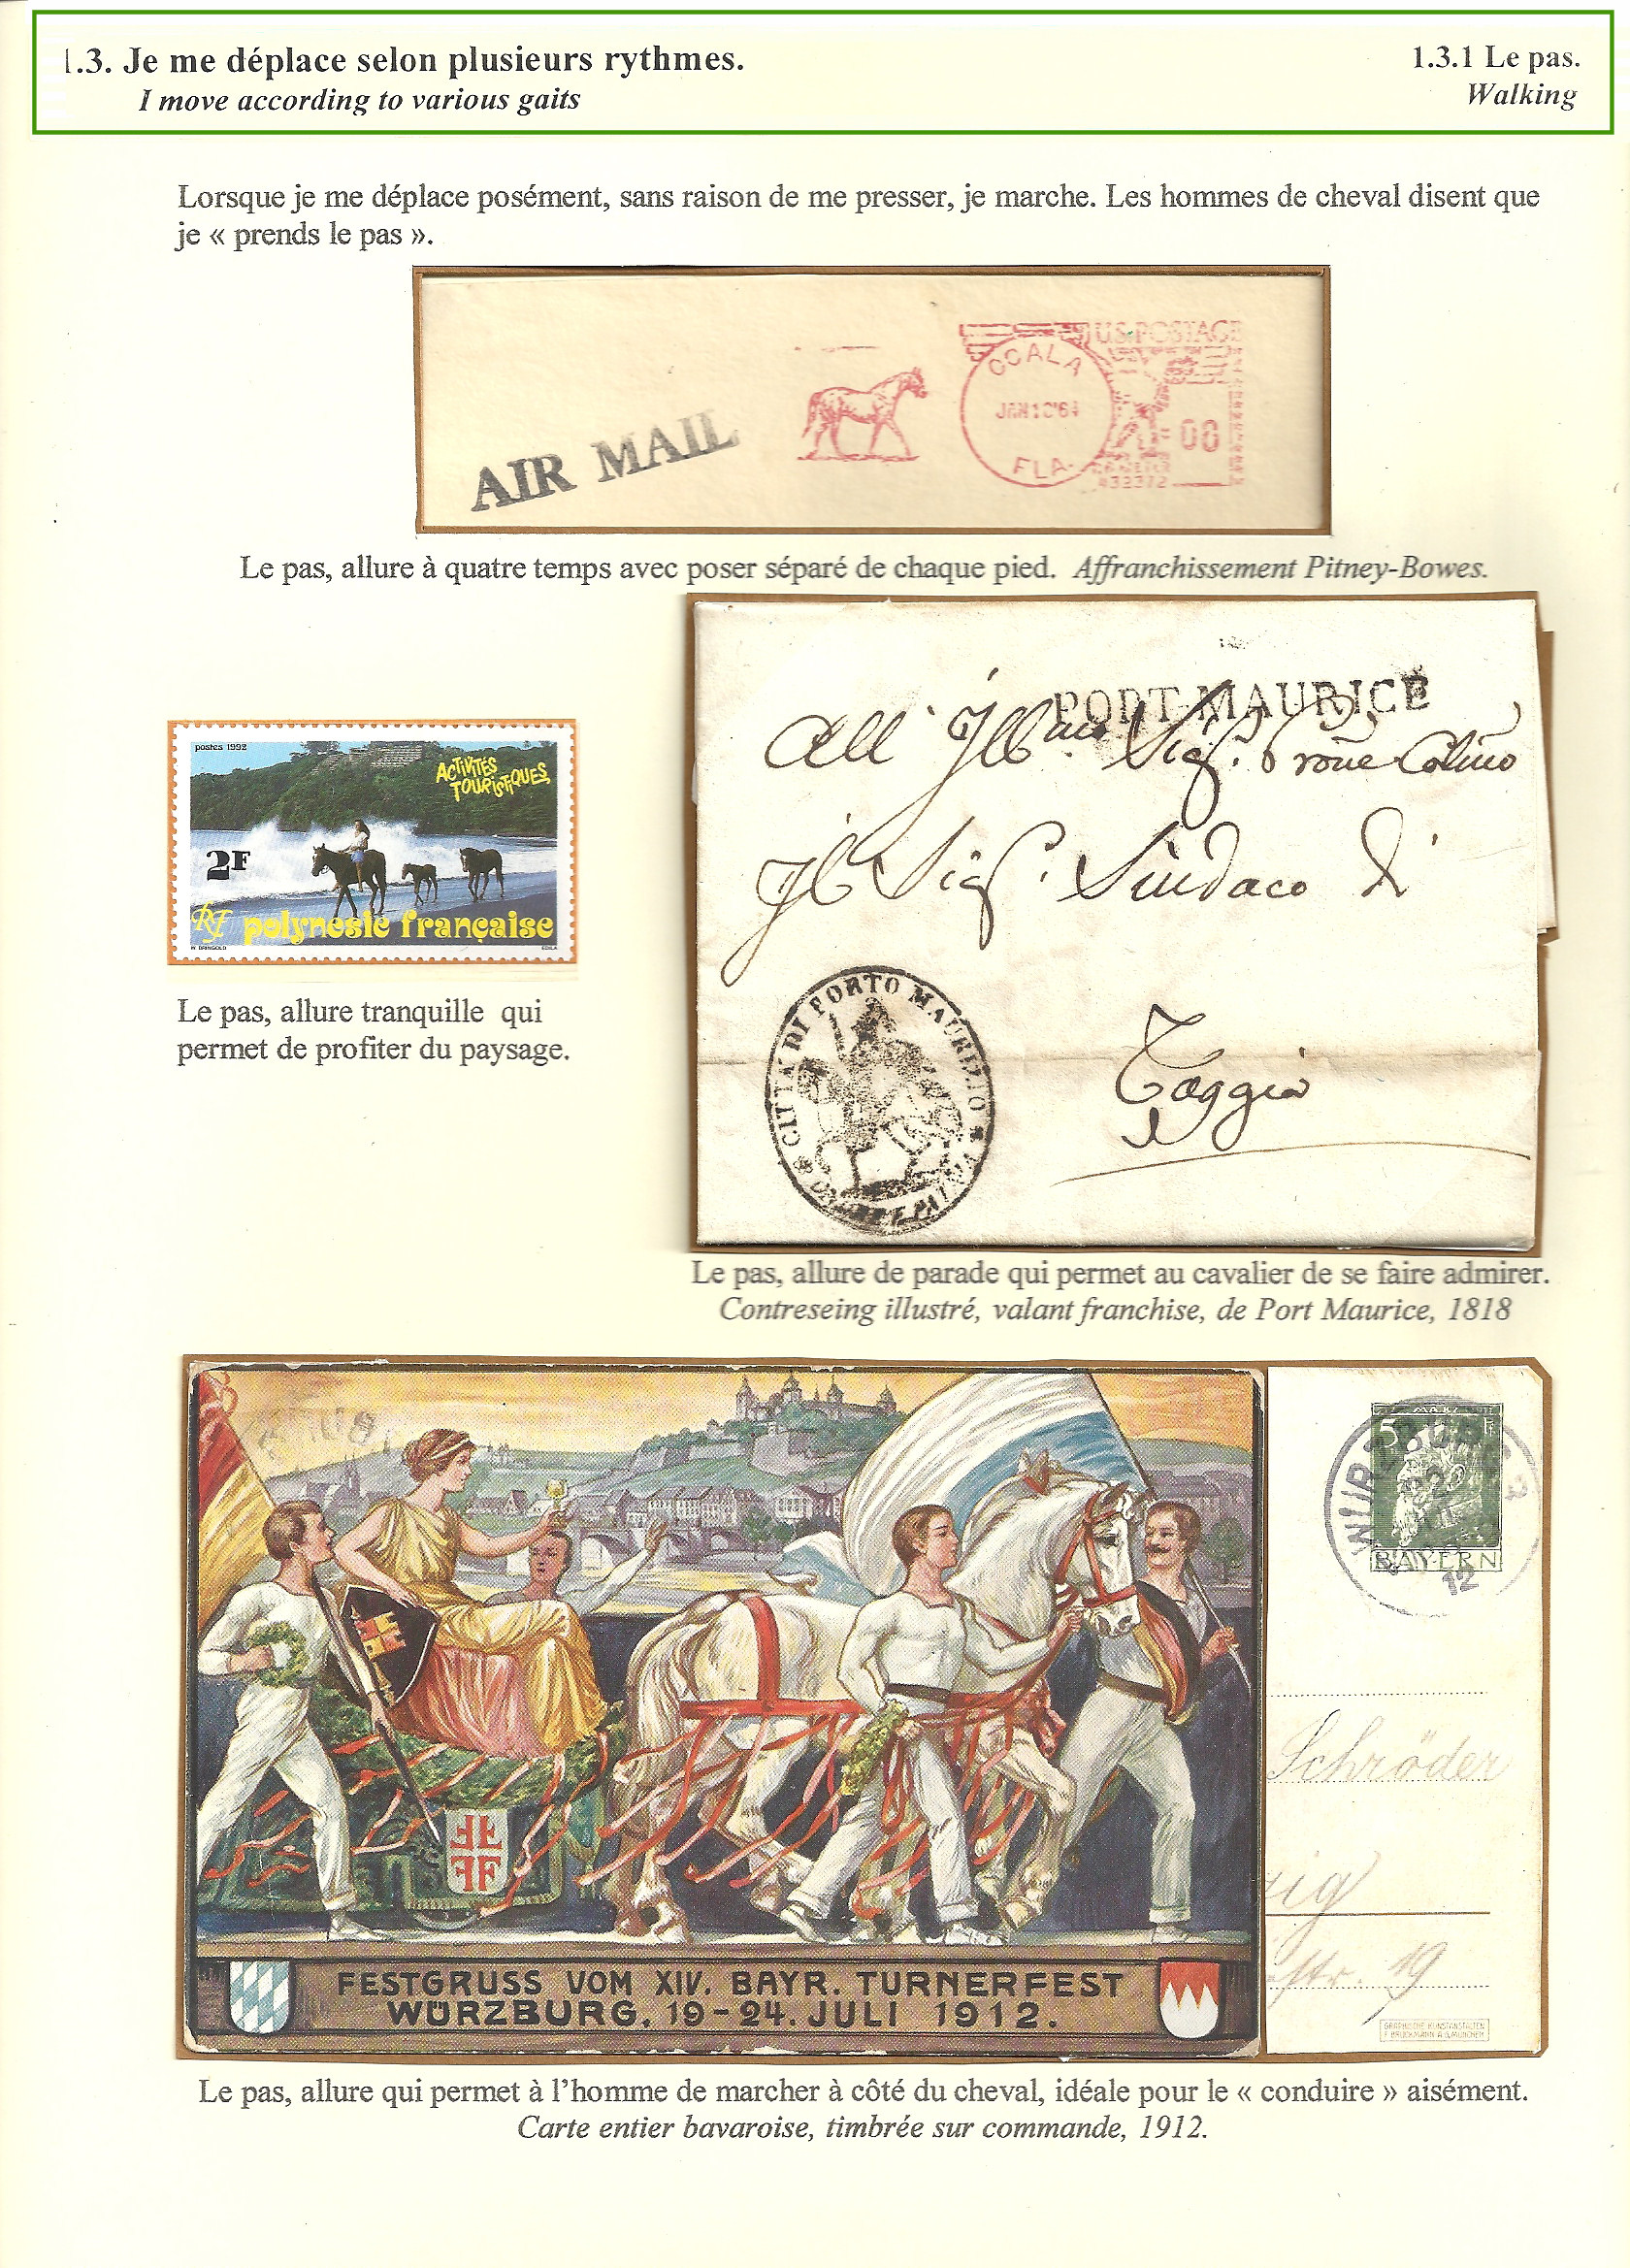 1.3. Je me déplace selon plusieurs rythmes.
1.3.1 Le pas.
I move according to various gaits
Walking
Lorsque je me déplace posément, sans raison de me presser, je marche. Les hommes de cheval disent que
je « prends le pas ».
AIR MAIL
OCALA
FLA.
U.S. POSTAGE
Le pas, allure à quatre temps avec poser séparé de chaque pied. Affranchissement Pitney-Bowes.
postes 1992
ACTIVITÉS
TOURISTIQUES
2F
RF polynesie française
Le pas, allure tranquille qui
permet de profiter du paysage.
PORT-MAURICE
Il Sig. Sindaco di
Taggia
CITTA DI PORTO MAURIZIO
Le pas, allure de parade qui permet au cavalier de se faire admirer.
Contreseing illustré, valant franchise, de Port Maurice, 1818
WÜRZBURG
12
5
BAYERN
Schröder
zig
str. 19
GRAPHISCHE KUNSTANSTALTEN
F. BRUCKMANN A.G. MÜNCHEN
FESTGRUSS VOM XIV. BAYR. TURNERFEST
WÜRZBURG, 19-24. JULI 1912.
Le pas, allure qui permet à l'homme de marcher à côté du cheval, idéale pour le « conduire » aisément.
Carte entier bavaroise, timbrée sur commande, 1912.